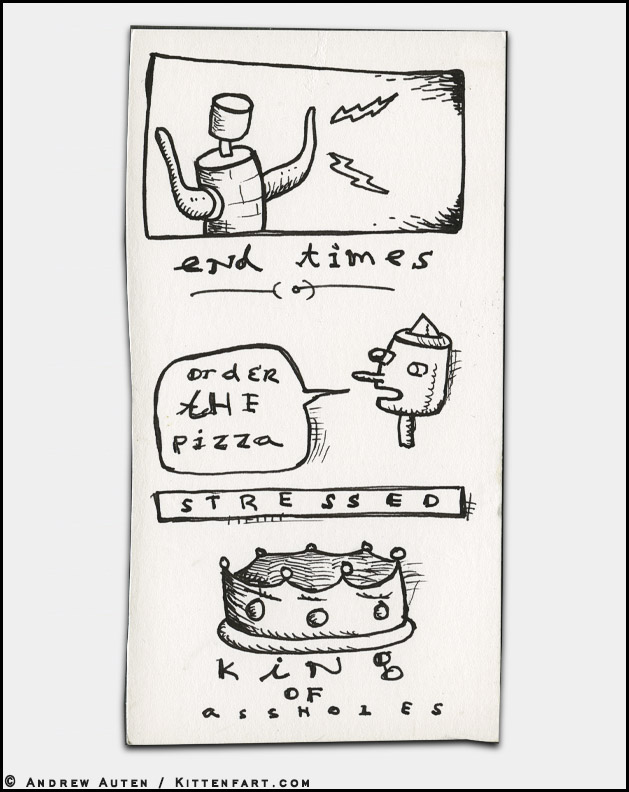 end times
order
tHE
pizza
STRESSED
KiNg
OF
assHolES
© Andrew Auten / Kittenfart.com